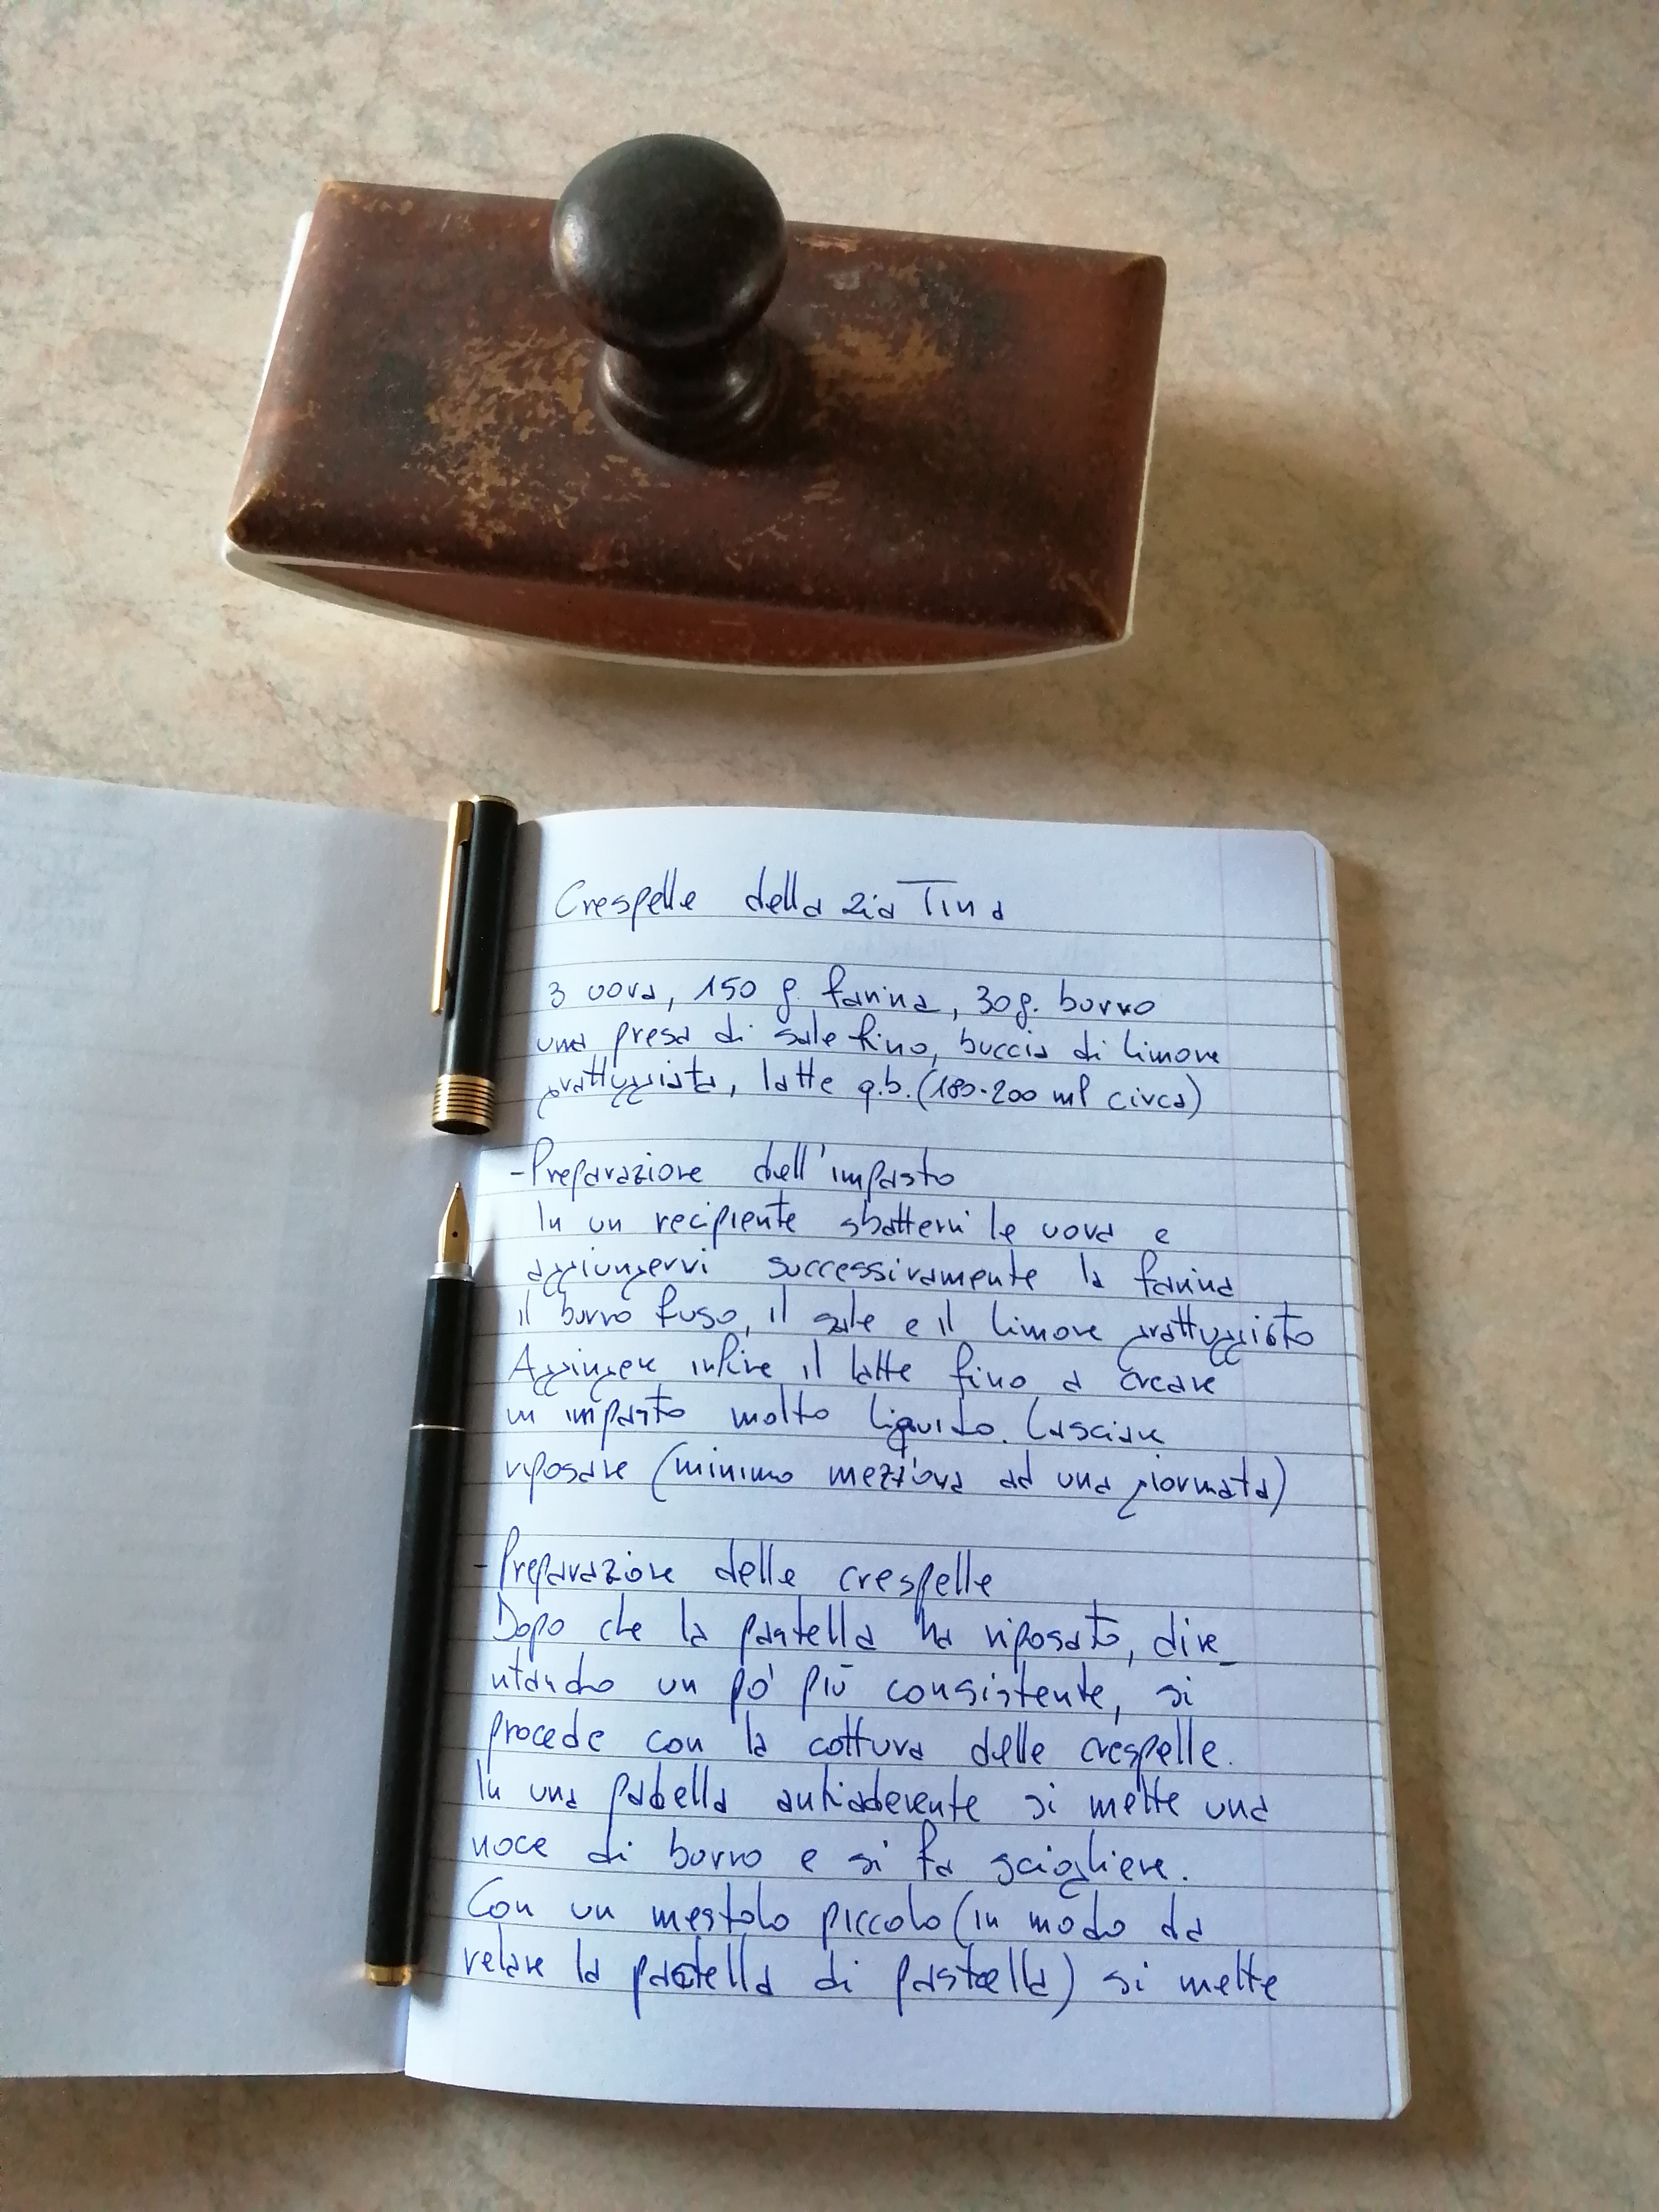 Crespelle della zia Tina
3 uova, 150 g. farina, 30g. burro
una presa di sale fino, buccia di limone
grattuggiata, latte q.b. (180-200 ml circa)
-Preparazione dell'impasto
In un recipiente sbattervi le uova e
aggiungervi successivamente la farina
il burro fuso, il sale e il limone grattuggiato
Aggingere infine il latte fino a creare
un impasto molto liquido. Lasciare
riposare (minimo mezz'ora ad una giornata)
-Preparazione delle crespelle
Dopo che la pastella ha riposato, dive_
ntando un po' più consistente, si
procede con la cottura delle crespelle.
In una padella antiaderente si mette una
noce di burro e si fa sciogliere.
Con un mestolo piccolo (in modo da
velare la padella di pastella) si mette